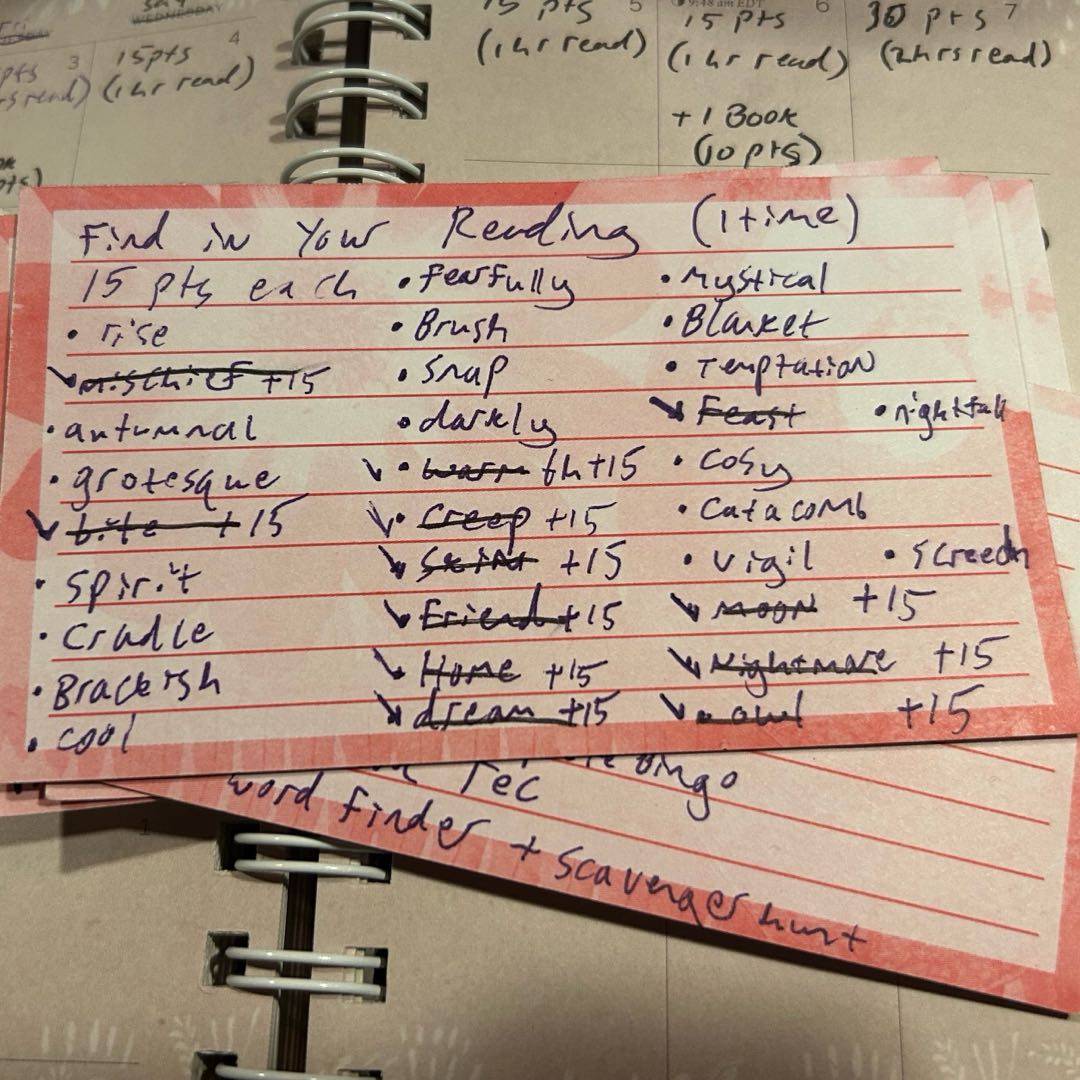 WEDNESDAY
3
15pts
4
(1 hr read)
15 pts
5
(1 hr read)
9:48 am EDT
15 pts
6
(1 hr read)
+ 1 Book
(10 pts)
30 pts
7
(2hrs read)
Find in Your Reading (1 time)
15 pts each
• rise
mischief +15
• autumnal
• grotesque
bite +15
• spirit
• Cradle
• Brackish
• cool
• fearfully
• Brush
• Snap
• darkly
• warmth +15
• Creep +15
+15
Friend +15
Home +15
dream +15
• Mystical
• Blanket
• Temptation
Feast
• nightfall
• Cosy
• Catacomb
• Vigil
• Screech
moon +15
Nightmare +15
• owl +15
Bingo
rec
word finder + Scavenger hunt